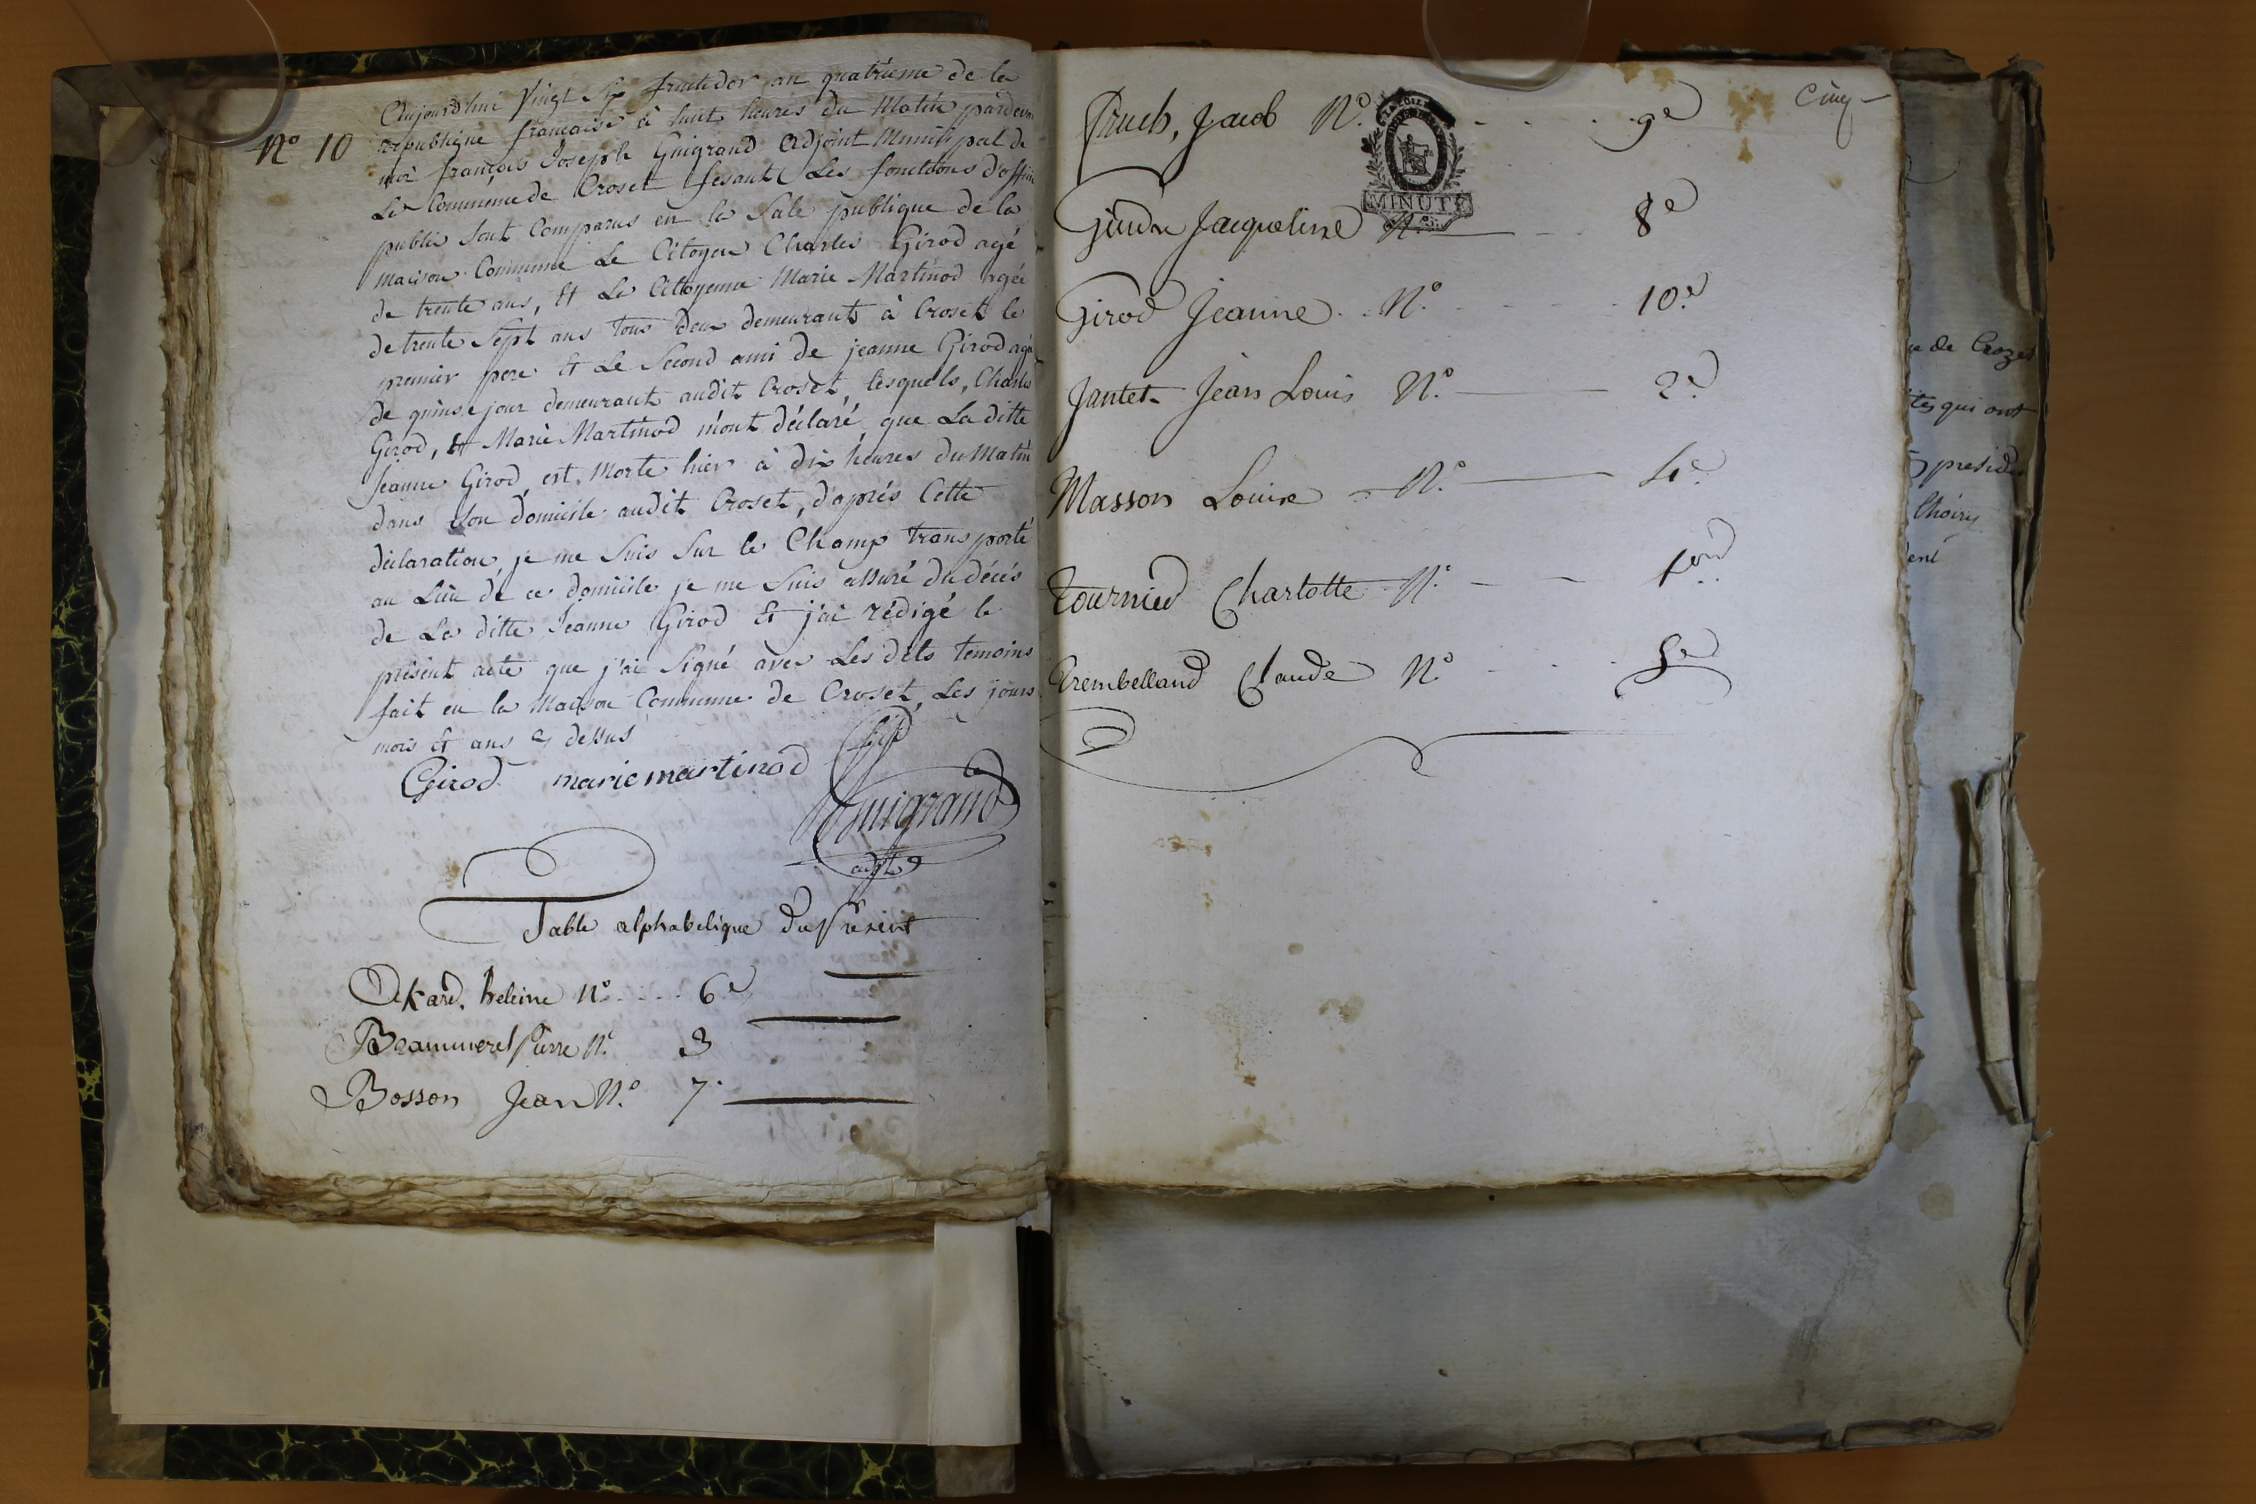 N° 10
Aujourd'hui Vingt Sep fructidor an quatrieme de la
republique française à huit heures du Matin pardevant
moi françois Joseph Guigrand Adjoint Municipal de
La Commune de Croset fesant Les fonctions d'officier
public sont Comparus en la Sale publique de la
maison Commune Le Citoyen Charles Girod agé
de trente ans, Et La Citoyenne Marie Martinod agée
de trente Sept ans tous Deux demeurants à Croset le
premier pere Et Le Second ami de jeanne Girod agée
de quinse jour demeurant audit Croset, lesquels, Charles
Girod, Et Marie Martinod m'ont déclaré que La ditte
Jeanne Girod est Morte hier à dix heures du Matin
dans son domicile audit Croset, d'aprés Cette
déclaration, je me Suis Sur le Champ transporté
au Lieu de ce domicile je me Suis assuré du décés
de La ditte Jeanne Girod Et j'ai rédigé le
présent acte que j'ai Signé avec Les dits temoins
fait en la Maison Commune de Croset, Les jours
mois et ans cy dessus
Girod mariemartinod
Guigrand
adjt
Table alphabetique Du Présent
Dekard, heleine N° 6e
Brammerel Pierre N° 3
Bosson Jean N° 7
Cinq
Fruch, Jacob N° 9e
MINUTE
Jacqueline N° 8e
Girod Jeanne N° 10e
Jantet Jean Louis N° 2e
Masson Louise N° 4e
Tournier Charlotte N° 1er
Trembelland Claude N° 5e
ue de Crozet
ites qui ont
preside
Choiry
dent